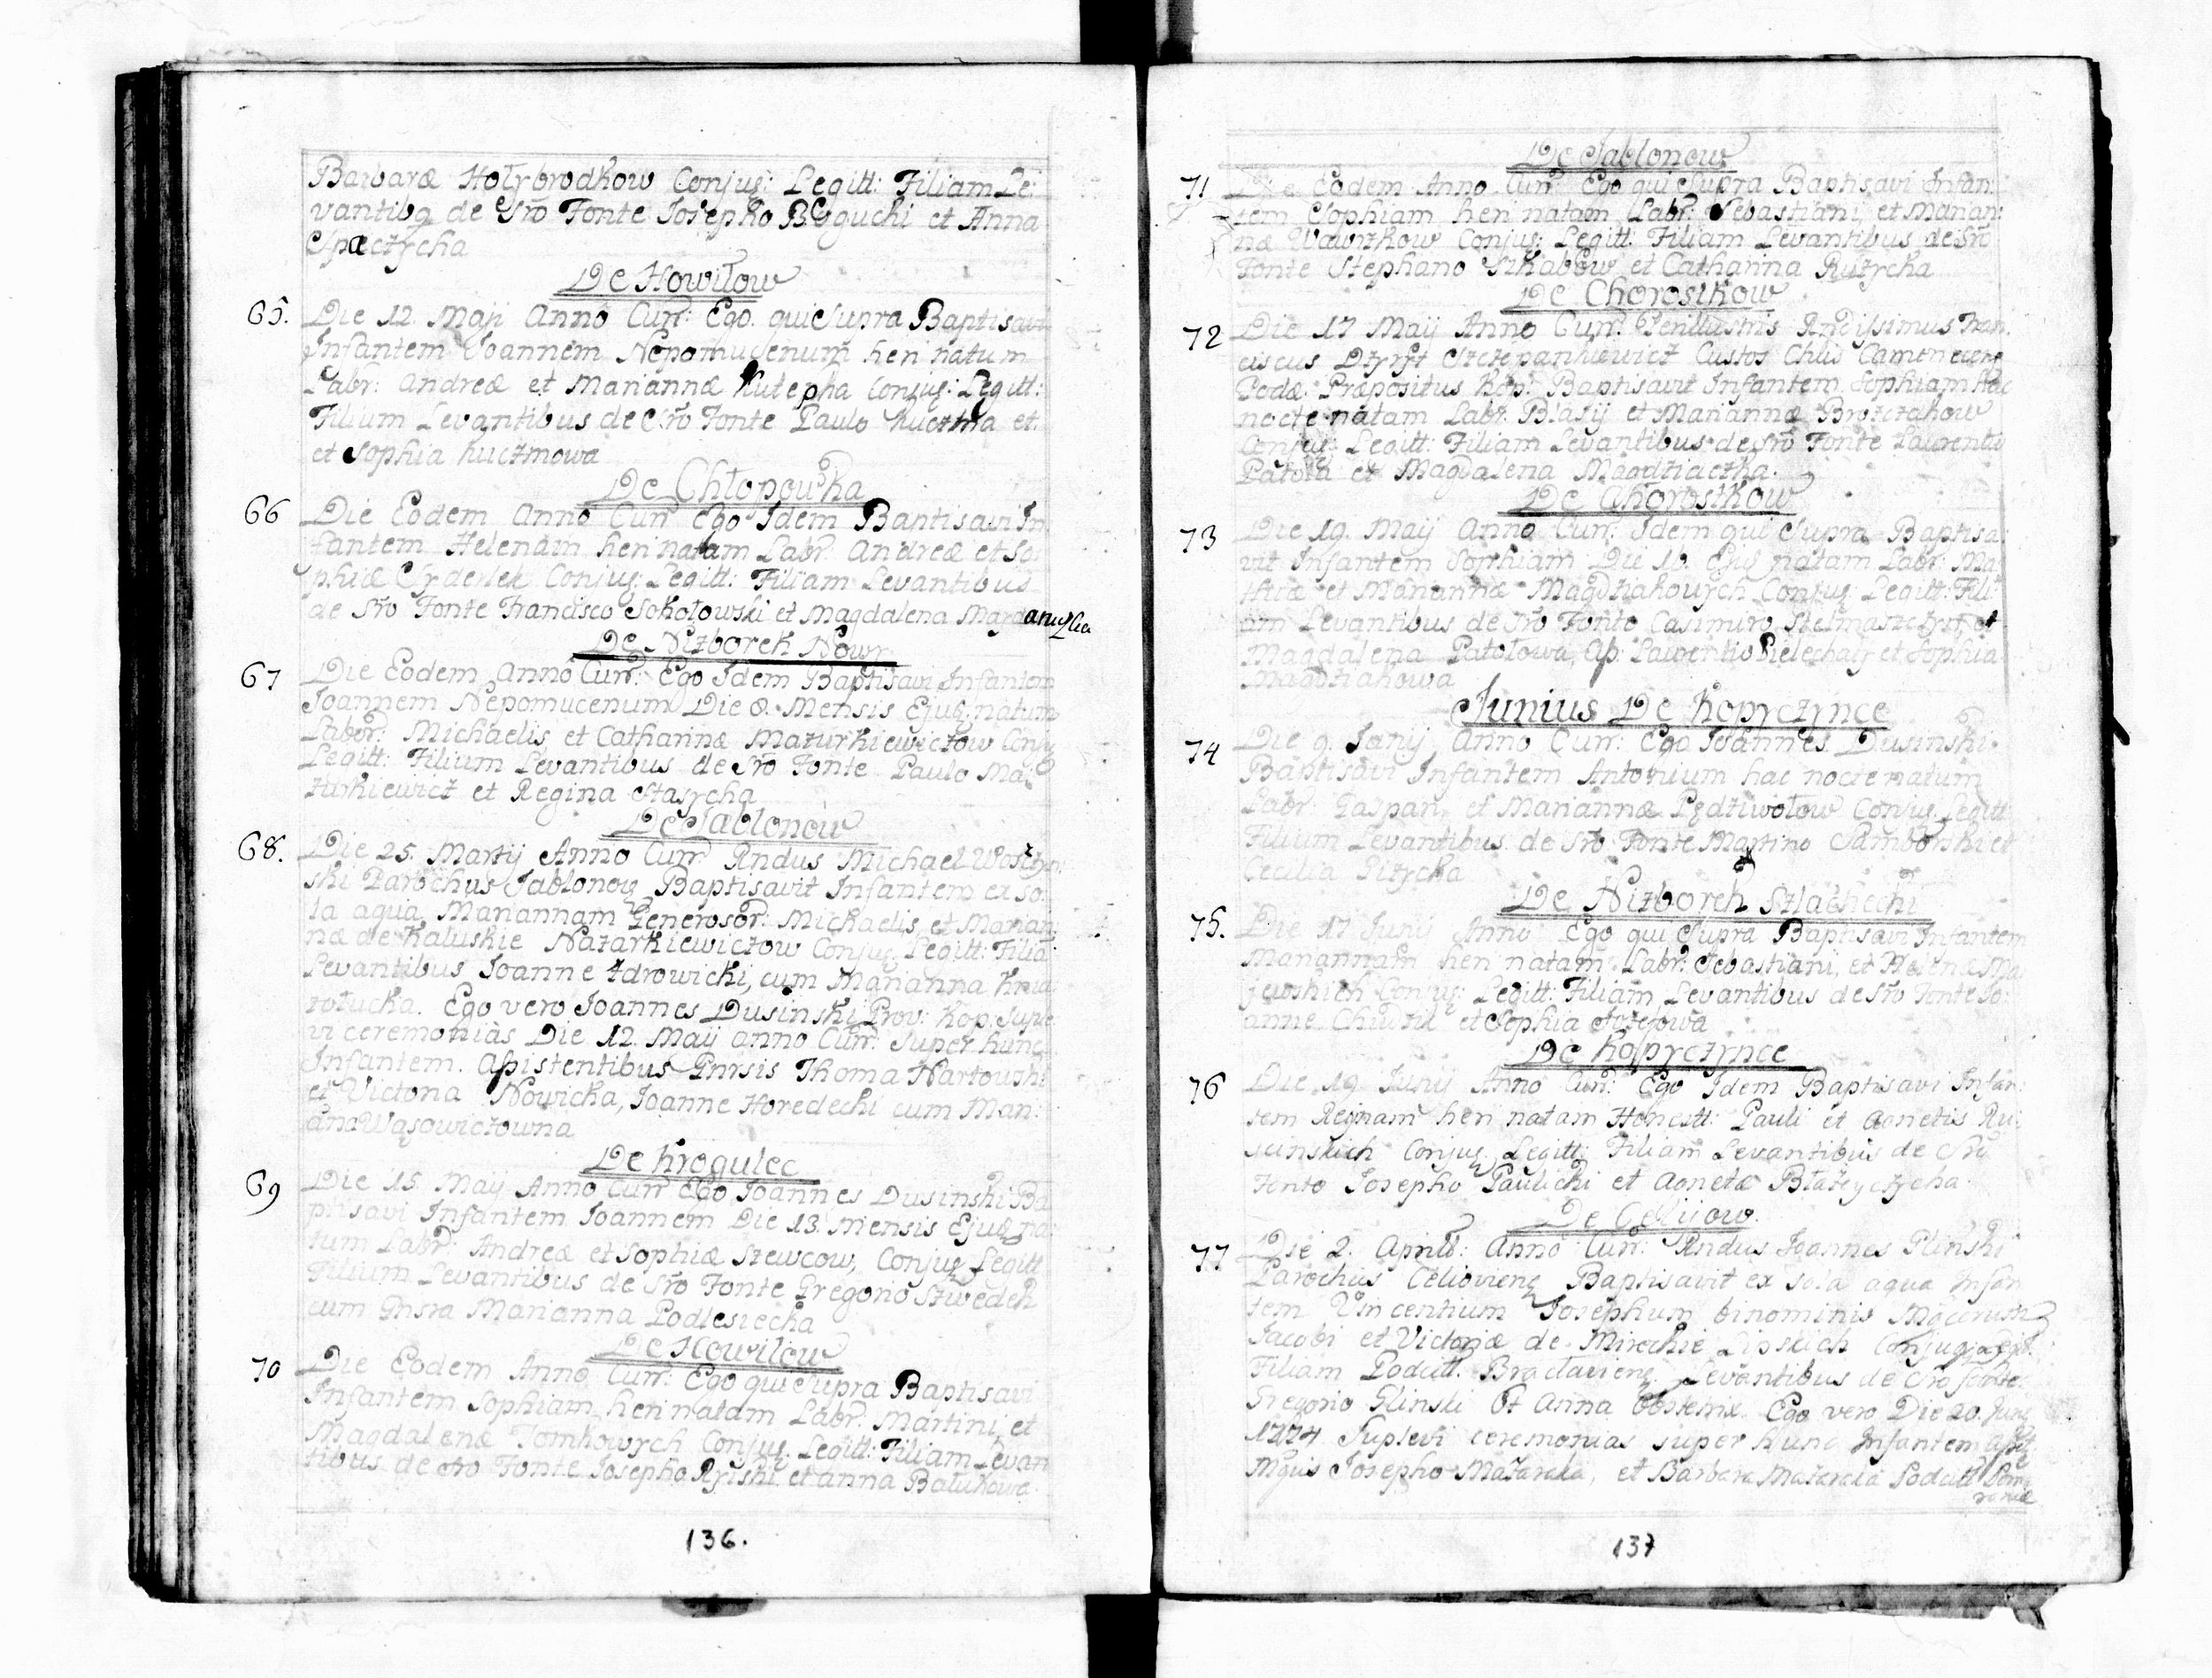 Barbaræ Hołybrodkow Conjug: Legitt: Filiam Le:
vantibq de Sro Fonte Josepho Boguchi et Anna
Spaczycha
De Howiłow
65. Die 12. Maji Anno Curr: Ego. qui Supra Baptisavi
Infantem Joannem Nepomucenum heri natum
Labr: Andreæ et Mariannæ Kutepha Conjug: Legitt:
Filium Levantibus de Sro Fonte Paulo Kuczma et
et Sophia Kuczmowa
De Chłopowka
66 Die Eodem Anno Curr Ego Idem Baptisavi In
fantem Helenam heri natam Labr. Andreæ et So:
phiæ Conjug: Legitt: Filiam Levantibus
de Sro Fonte Francisco Sokołowski et Magdalena
De Nizborek Nowy
67 Die Eodem Anno Curr: Ego Idem Baptisavi Infantem
Joannem Nepomucenum Die 8. Mensis Ejusq natum
Labor: Michaelis et Catharinæ Mazurkiewiczow Conjug
Legitt: Filium Levantibus de Sro Fonte Paulo Ma:
zurkiewicz et Regina Stasycha
De Jablonow
68. Die 25. Martij Anno Curr Rndus Michael
ski Parochus Jablonoq Baptisavit Infantem ex so:
la aqua Mariannam Generosor: Michaelis et Marian
næ de Kaluskie Nazarkiewiczow Conjug: Legitt: Filia
Levantibus Joanne Zdrowicki, cum Marianna
Ego vero Joannes Dusinski Prov: Kop: Suple
vi ceremonias Die 12. Maij anno Curr: Super hunc
Infantem. Assistentibus Gnrsis Thoma Nartowski
et Victoria Nowicka, Joanne Horedecki cum Mari:
anna Wąsowiczowna
De Krogulec
69 Die 15. Maij Anno Curr Ego Joannes Dusinski Ba
ptisavi Infantem Joannem Die 13. mensis Ejusq na:
tum Labr: Andreæ et Sophiæ Szewcow, Conjug Legitt
Filium Levantibus de Sro Fonte Gregorio Szwedek
cum Gnsra Marianna Podlesiecka
De Howilow
70 Die Eodem Anno Curr: Ego qui Supra Baptisavi
Infantem Sophiam heri natam Labr. Martini, et
Magdalenæ Tomkowych Conjug. Legitt: Filiam Levan
tibus de Sro Fonte Josepho Ryiski et anna Batukowa
136.
De Jablonow
71 Die Eodem Anno Curr Ego qui Supra Baptisavi Infan:
tem Sophiam heri natam Labr: Sebastiani, et Marian:
næ Wawrzkow Conjug: Legitt: Filiam Levantibus de Sro
Fonte Stephano Szkabow et Catharina Rużycka
De Chorostkow
72 Die 17 Maij Anno Curr: Perillustris Rndissimus Fran:
ciscus Szczepankiewicz Custos Camenecens
Podæ: Præpositus Kop: Baptisavit Infantem Sophiam hac
nocte natam Labr: Blasij et Mariannæ Brozczakow
Conjug: Legitt: Filiam Levantibus de Sro Fonte Laurentio
Patoła et Magdalena Magdziaczka.
De Chorostkow
73 Die 19. Maij Anno Curr: Idem qui Supra Baptisa:
vit Infantem Sophiam Die 16. Ejusq natam Labr: Ma:
thiæ et Mariannæ Magdziakowych Conjug: Legitt: Fili
am Levantibus de Sro Fonte Casimiro Stelmaszczyk, et
Magdalena Patołowa, As: Laurentio Pielechaty et Sophia
Magdziakowa
Junius De Kopyczynce
74 Die 9. Junij Anno Curr: Ego Joannes Dusinski
Baptisavi Infantem Antonium hac nocte natum
Labr: Gaspari, et Mariannæ Pędziwołow Conjug Legitt
Filium Levantibus de Sro Fonte Martino Samborski et
Cecilia Pizycka
De Nizborek Szlachecki
75. Die 17 Junij Anno Ego qui Supra Baptisavi Infantem
Mariannam heri natam Labr: Sebastiani, et Helenæ Ma
jewskich Conjug: Legitt: Filiam Levantibus de Sro Fonte Jo:
anne et Sophia Jozefowa
De Kopyczynce
76 Die 19. Junij Anno Curr: Ego Idem Baptisavi Infan:
tem Reginam heri natam Honestt: Pauli et Agnetis Ru:
scinskich Conjug. Legitt: Filiam Levantibus de Sro
Fonto Josepho Paulicki et Agneta Błażyczycha
De Celijow.
77 Die 2. Aprill: Anno Curr: Rndus Joannes Plinski
Parochus Celiovienq Baptisavit ex sola aqua Infan
tem Vincentium Josephum binominis Mgcorum
Jacobi et Victoriæ de Mirechie Lipskich Conjug Legit.
Filiam Podczt. Braclavienq. Levantibus de Sro fonte
Gregorio Glinski Et Anna Ego vero Die 20. Junij
1774 Suplevi ceremonias super hunc Infantem
Mgcis Josepho Mazaraka, et Barbara Mazaraka Podczt
137